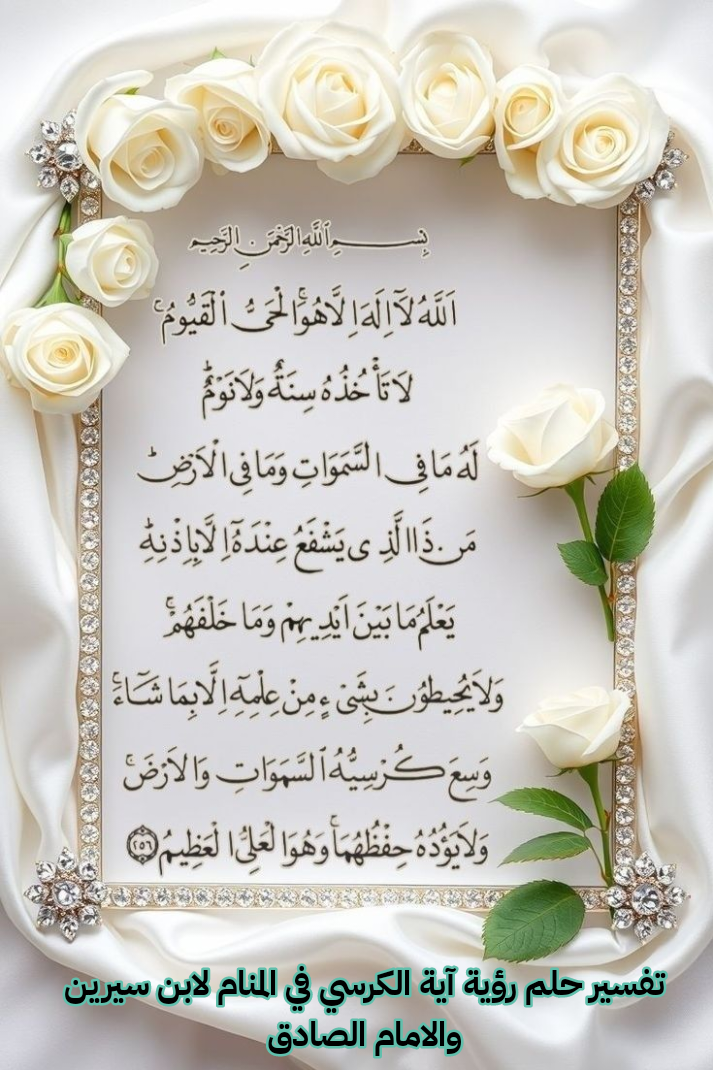 بِسْمِ اللَّهِ الرَّحْمَنِ الرَّحِيمِ
اَللَّهُ لَآ اِلَهَ اِلَّا هُوَۚ الْحَىُّ الْقَيُّومُۚ
لَا تَأْخُذُهُ سِنَةٌ وَلَا نَوْمٌؕ
لَهُ مَا فِى السَّمَوَاتِ وَمَا فِى الْاَرْضِؕ
مَنْ ذَا الَّذِى يَشْفَعُ عِنْدَهُٓ اِلَّا بِاِذْنِهِؕ
يَعْلَمُ مَا بَيْنَ اَيْدِيهِمْ وَمَا خَلْفَهُمْۚ
وَلَا يُحِيطُونَ بِشَىْءٍ مِنْ عِلْمِهِٓ اِلَّا بِمَا شَآءَۚ
وَسِعَ كُرْسِيُّهُ السَّمَوَاتِ وَالْاَرْضَۚ
وَلَا يَؤُدُهُ حِفْظُهُمَاۚ وَهُوَ الْعَلِىُّ الْعَظِيمُ ﴿٢٥٦﴾
تفسير حلم رؤية آية الكرسي في المنام لابن سيرين
والامام الصادق